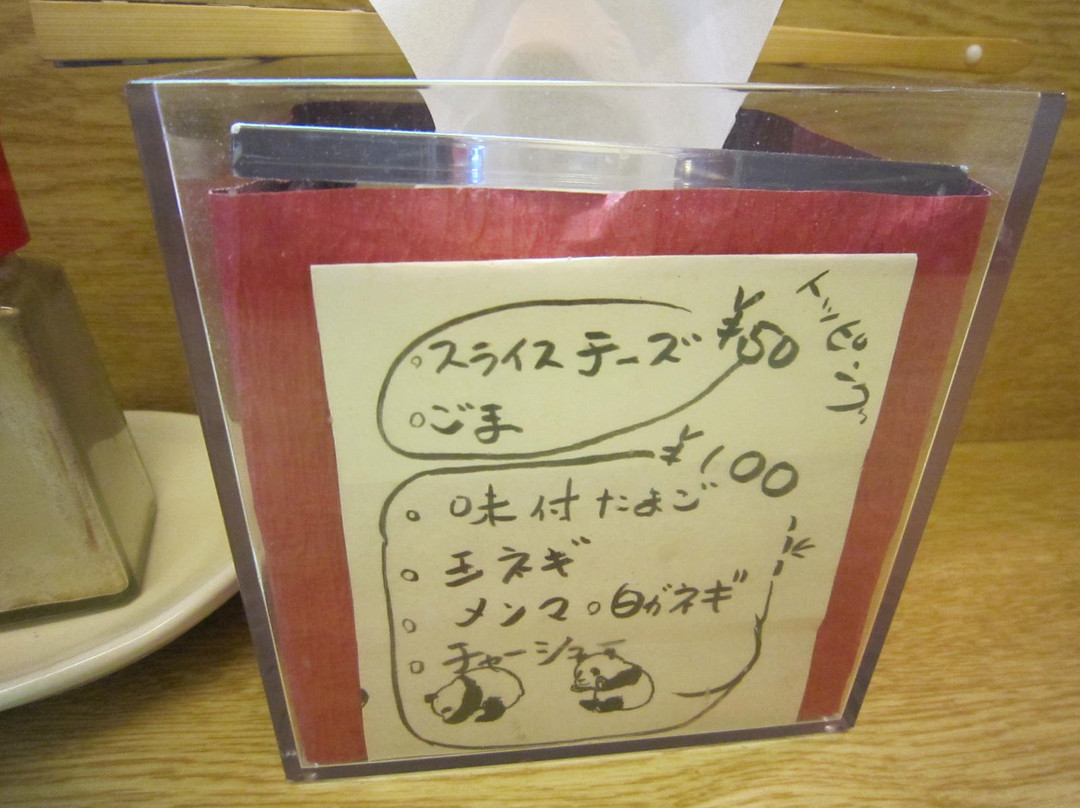 トッピング
○スライスチーズ ¥50
○ごま
¥100
○味付たまご
○玉ネギ
○メンマ○白ガネギ
○チャーシュー